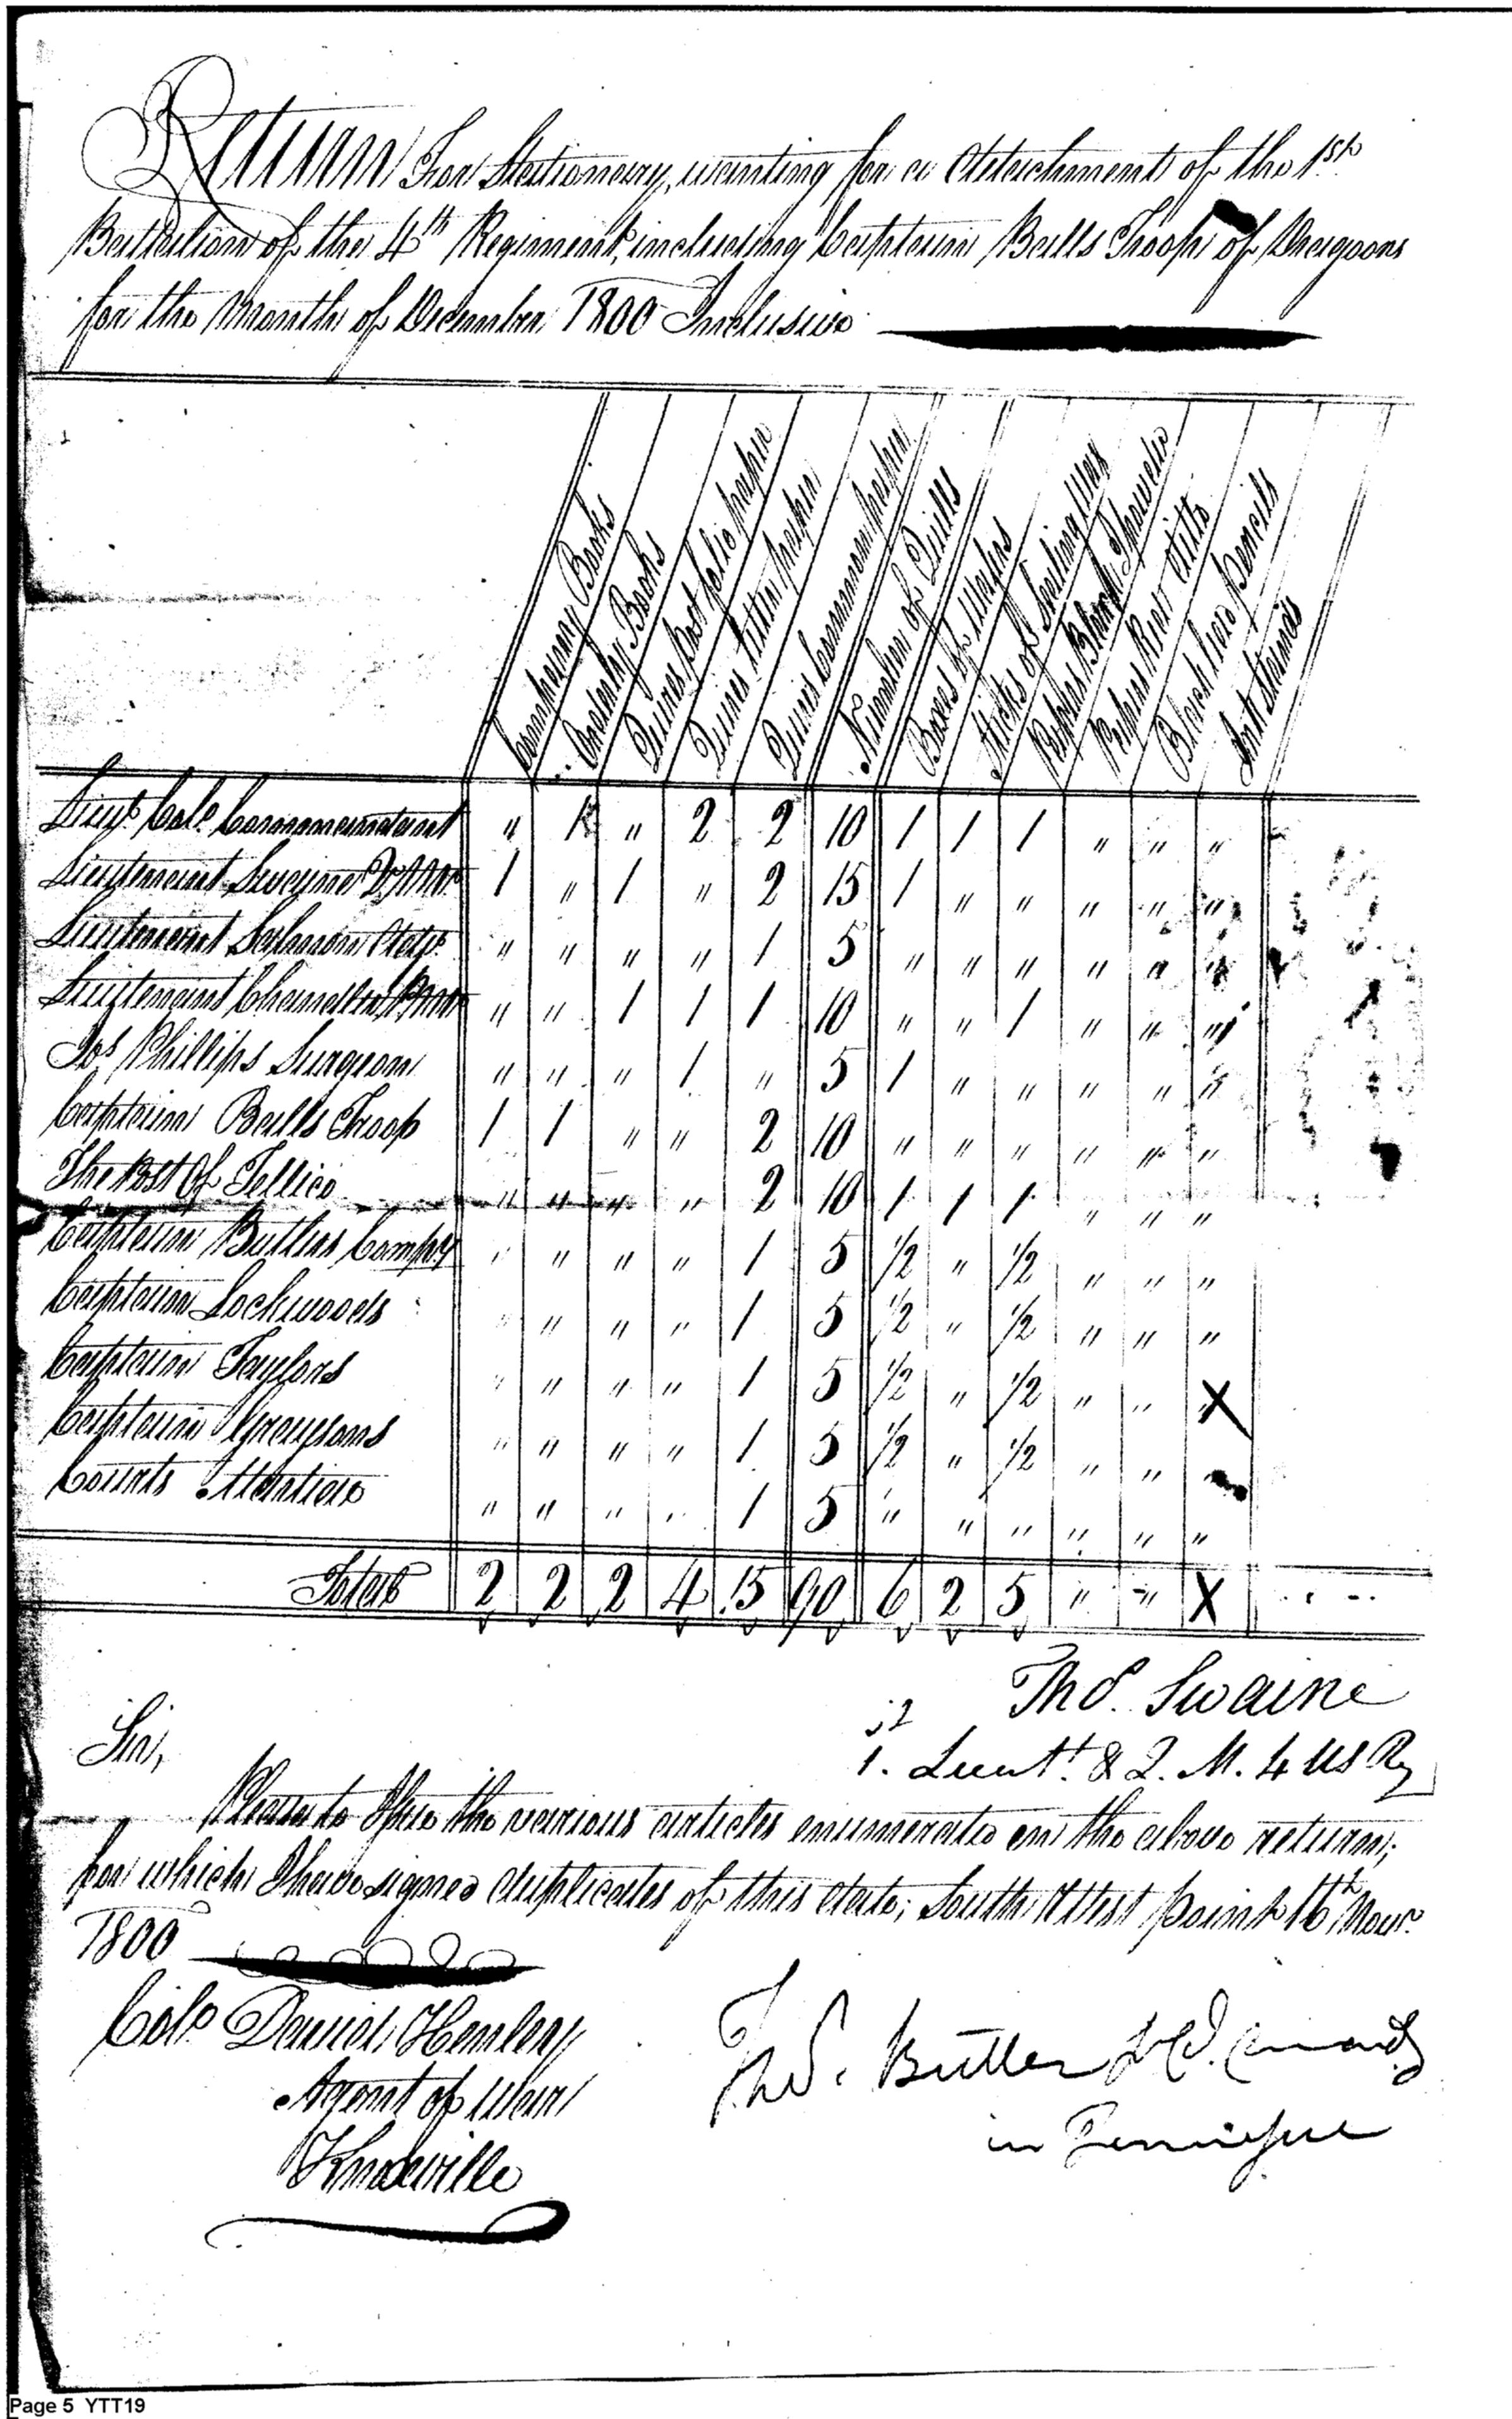 Return For Stationary, wanting for a Detachment of the 1st
Battalion of the 4th Regiment, including Captain Balls Troop of Dragoons
for the Month of December 1800 Inclusive
Company Books
Orderly Books
Quires post folio paper
Quires letter paper
Quires Common paper
Number of Quills
Boxes of Wafers
Sticks of Sealing Wax
Papers Black Powder
Papers Red ditto
Black lead pencils
Ink Stands
Lieut Colo Commandant " 1 " 2 2 10 1 1 1 " " "
Lieutenant Swayne Q,,Mr 1 " 1 " 2 15 1 " " " " "
Lieutenant " " " " 1 5 " " " " " "
Lieutenant " " 1 1 1 10 " " 1 " " "
Jos Phillips Surgeon " " " 1 " 5 1 " " " " "
Captain Balls Troop 1 1 " " 2 10 " " " " " "
The Post Of Tellico " " " " 2 10 1 1 1 " " "
Captain Butlers Compy " " " " 1 5 1/2 " 1/2 " " "
Captain Lockwoods " " " " 1 5 1/2 " 1/2 " " "
Captain Taylors " " " " 1 5 1/2 " 1/2 " " X
Captain Graysons " " " " 1 5 1/2 " 1/2 " "
Courts Martial " " " " 1 5 " " " " " "
Total 2 2 2 4 15 90 6 2 5 " " X
Thos. Swaine
1.st Lieut. & Q. M. 4 US Rg
Sir,
Please to Issue the various articles enumerated in the above return;
for which I have signed duplicates of this date; South West point 16th Novr.
1800
Colo David Henley
Agent of War
Knoxville
Thos. Butler
in Tennessee
Page 5 YTT19